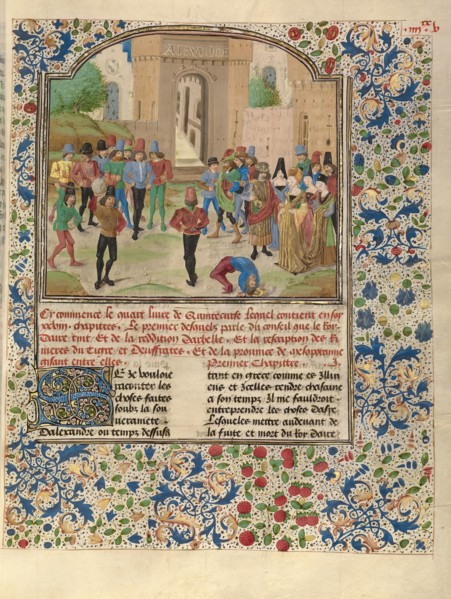 Cy commence le quart livre de Quinte curse lequel contient en soy
chapitres. Le premier desquels parle du conseil que le Roy
Daire tint. Et de la reddition Darbelle. Et la description des Ri
vieres du Tigre et Deuffrates. Et de la province de mesopotamie
gisant entre elles. Premier Chapittre.
SE Je vouloie
racompter les
choses faittes
soubz la sou
verainete
Dalexandre ou temps dessusd
tant en grece comme es Illiri
ens et Icelles rendre chascune
a son temps. Il me fauldroit
entreprendre les choses Dasie
Lesquelles mettre audevant de
la fuite et mort du Roy daire